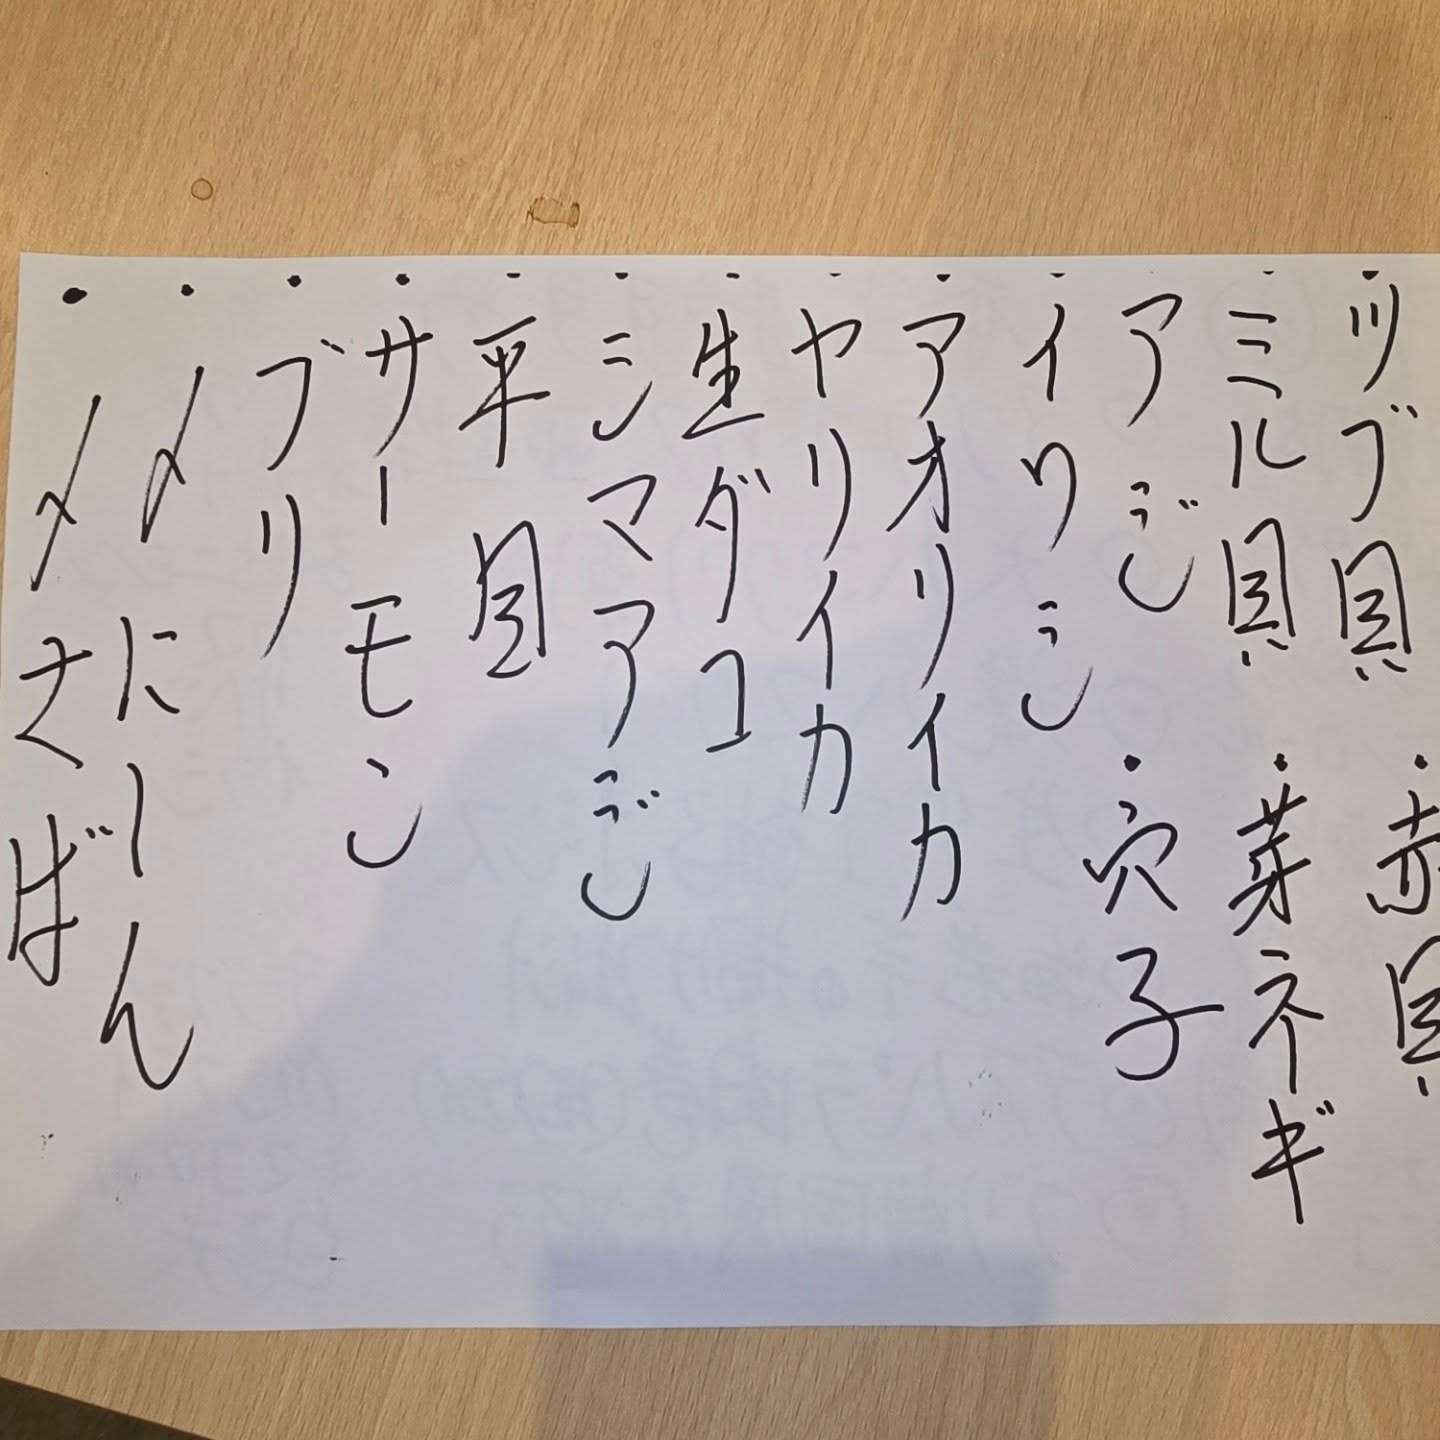 ・ツブ貝
・赤貝
・ミル貝
・芽ネギ
・アジ
・穴子
・イワシ
・アオリイカ
・ヤリイカ
・生ダコ
・シマアジ
・平目
・サーモン
・ブリ
・〆にしん
・〆さば